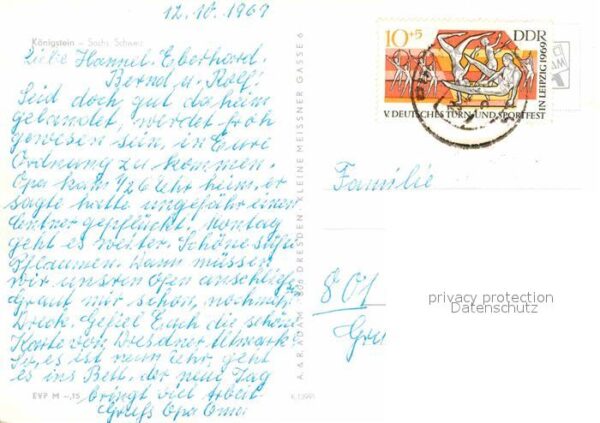 12.10.1969
Königstein – Sächs. Schweiz
Liebe Hannel. Eberhard.
Bernd u. Rolf!
Seid doch gut da heim
gelandet, werdet froh
gewesen sein, in Eure
Ordnung zu kommen.
Opa kam 1/26 Uhr heim, er
sagte hatte ungefähr einen
Centner gepflückt. Montag
geht es weiter. Schöne süße
Pflaumen. Dann müssen
wir unsren Ofen anschließ
Graut mir schon, nochmal
Dreck. Gefiel Euch die schöne
Karte vom Dresdner Altmarkt
So, es ist neun Uhr, geht
es ins Bett. der neue Tag
bringt viel Arbeit
Gruß Opa Oma
EVP M –,15
A. & R. ADAM 806 DRESDEN KLEINE MEISSNER GASSE 6
10+5 DDR
V. DEUTSCHES TURN- UND SPORTFEST
IN LEIPZIG 1969
Familie
801
privacy protection
Datenschutz